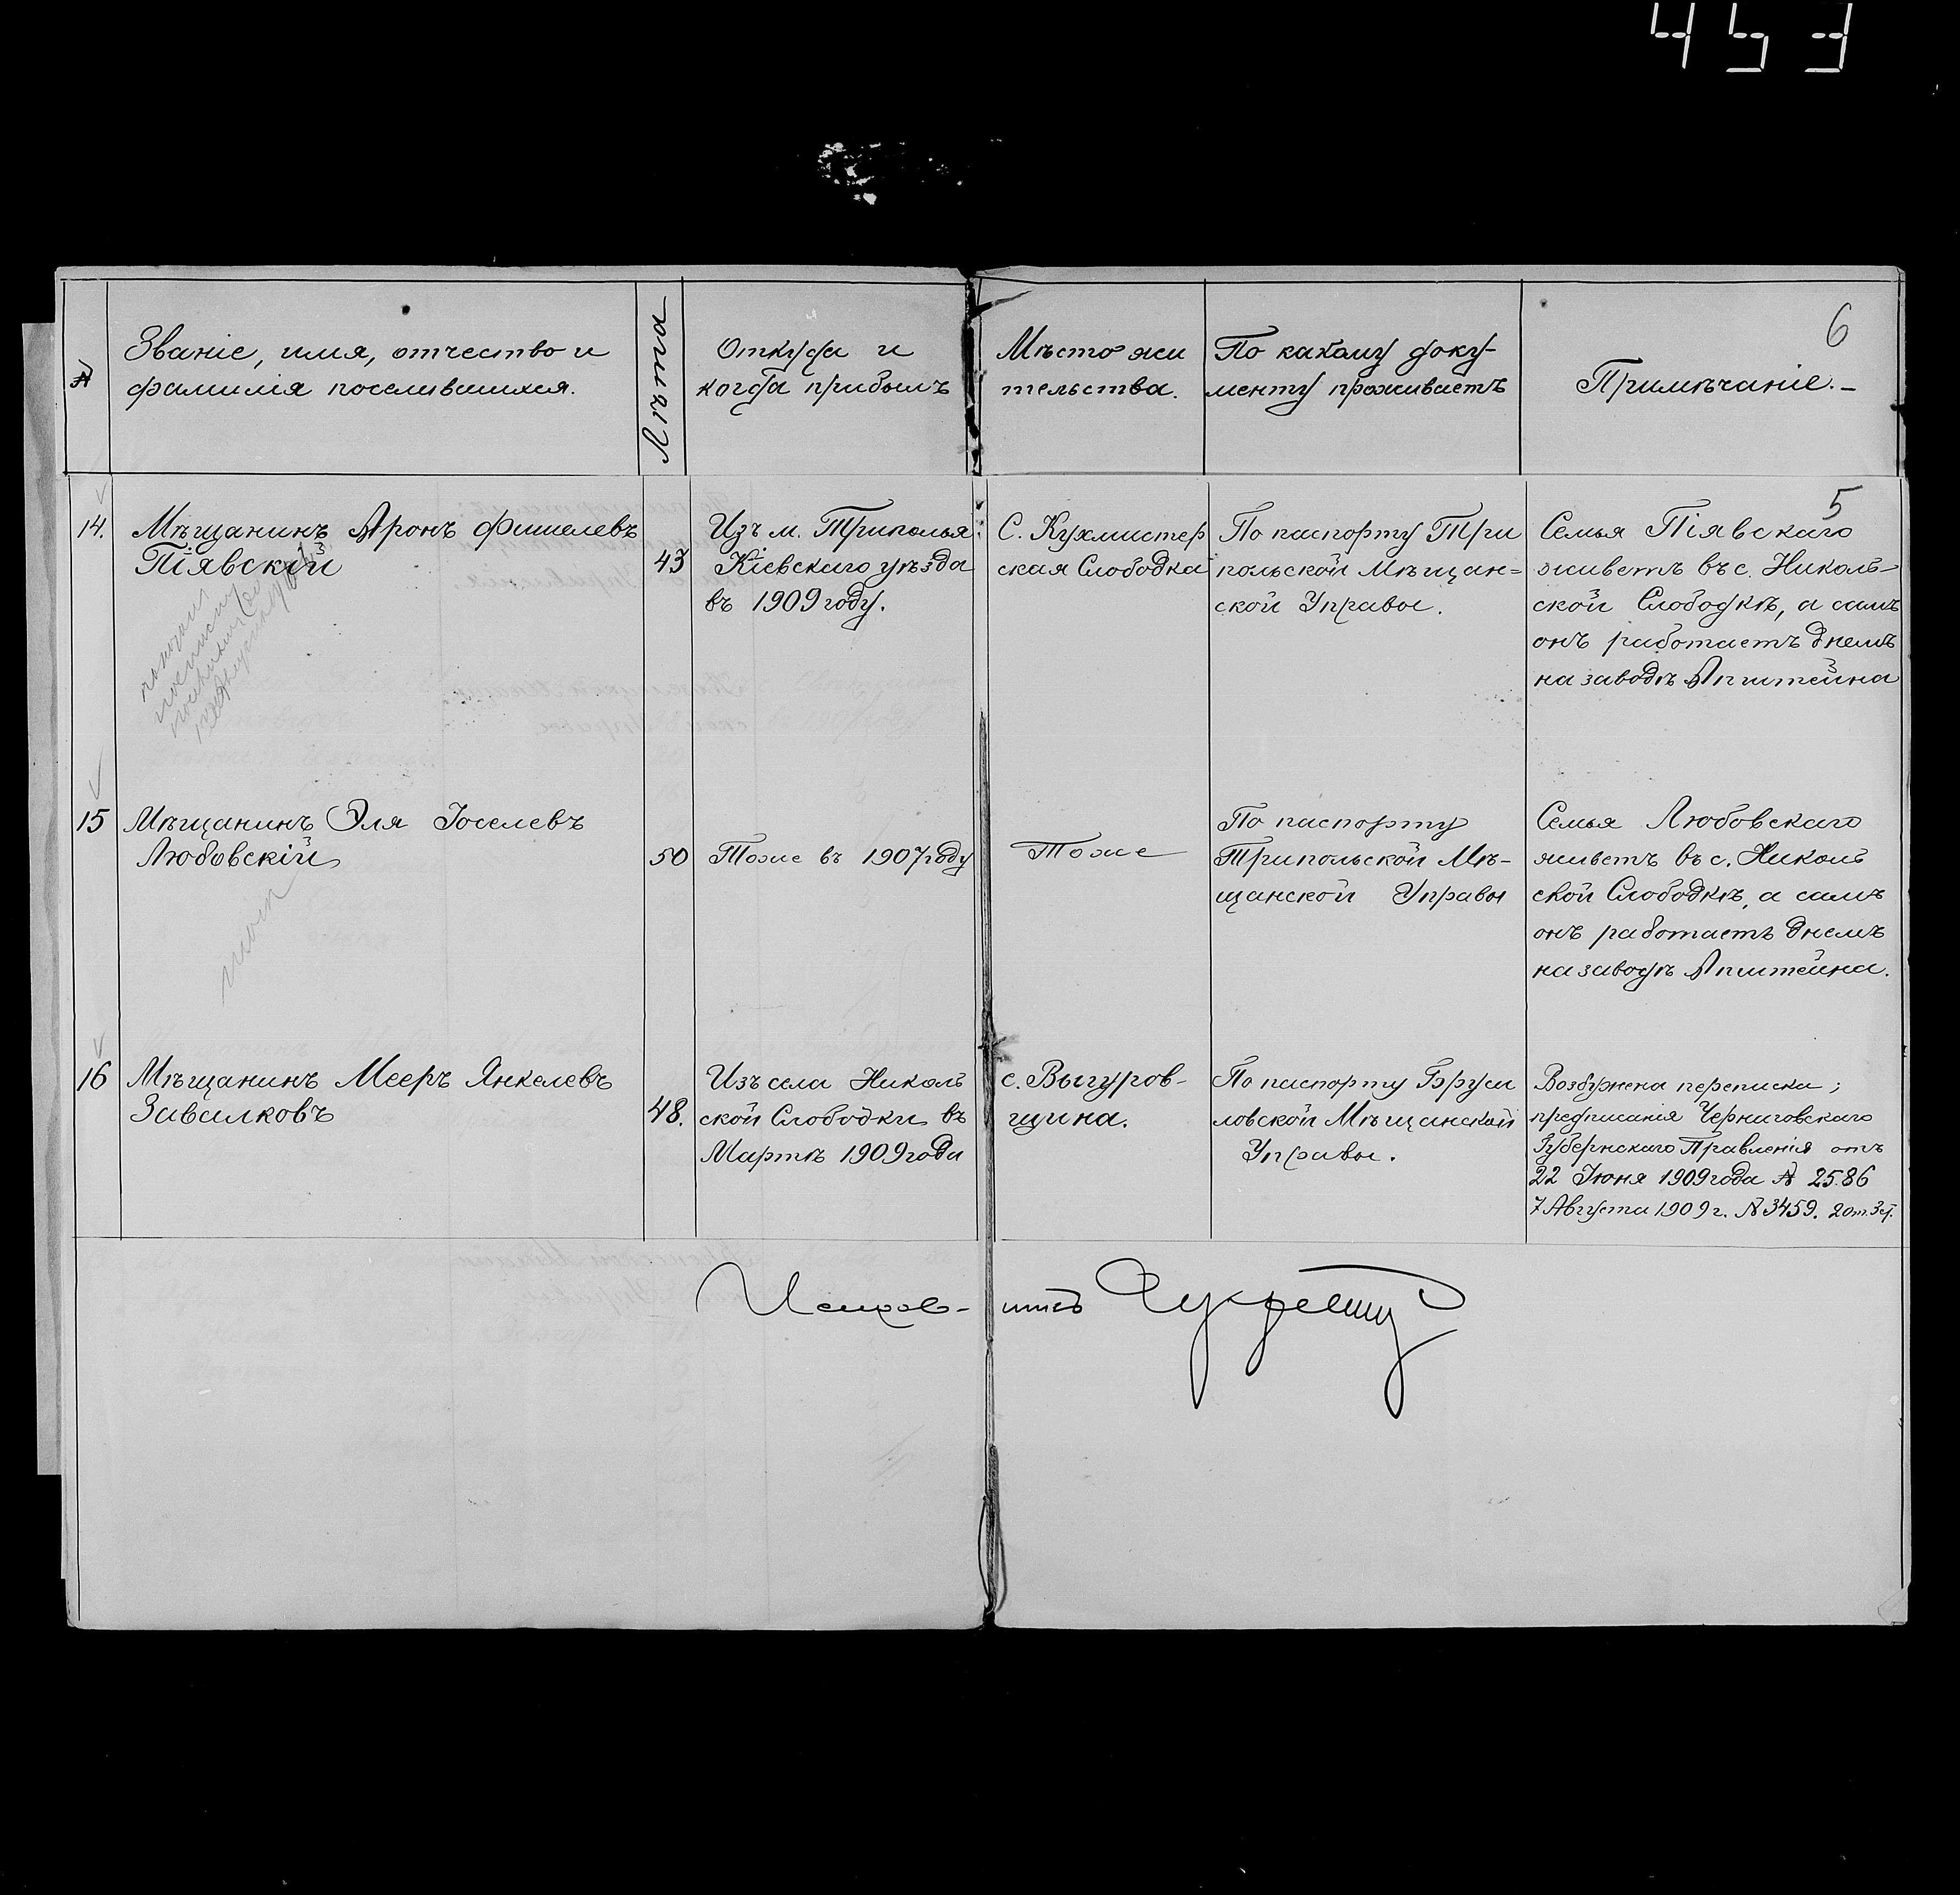 453
6
№
Званіе, имя, отчество и
фамилія поселившихся.
Лѣта
Откуда и
когда прибылъ
Мѣсто жи
тельства.
По какому доку-
менту проживаетъ
Примѣчаніе.-
5
14.
Мѣщанинъ Аронъ Фишелевъ
Піявскій
43
Изъ м. Триполья
Кіевскаго уѣзда
въ 1909 году.
С. Кухмистер
ская Слободка
По паспорту Три
польской Мѣщан=
ской Управы.
Семья Піявскаго
живетъ въ с. Николь-
ской Слободкѣ, а самъ
онъ работаетъ днемъ
на заводѣ Апштейна
15
Мѣщанинъ Эля Іоселевъ
Любовскій
50
Тоже въ 1907 году
Тоже
По паспорту
Трипольской Мѣ-
щанской Управы
Семья Любовскаго
живетъ въ с. Николь
ской Слободкѣ, а самъ
онъ работаетъ днемъ
на заводѣ Апштейна.
16
Мѣщанинъ Мееръ Янкелевъ
Завилковъ
48.
Изъ села Николь
ской Слободки въ
Мартѣ 1909 года
с. Выгуров-
щина.
По паспорту Бруси
ловской Мѣщанской
Управы.
Возбуждена переписка;
предписанія Черниговскаго
Губернскаго Правленія отъ
22 Іюня 1909 года № 2586
7 Августа 1909 г. № 3459. 2 от. 3 ст.